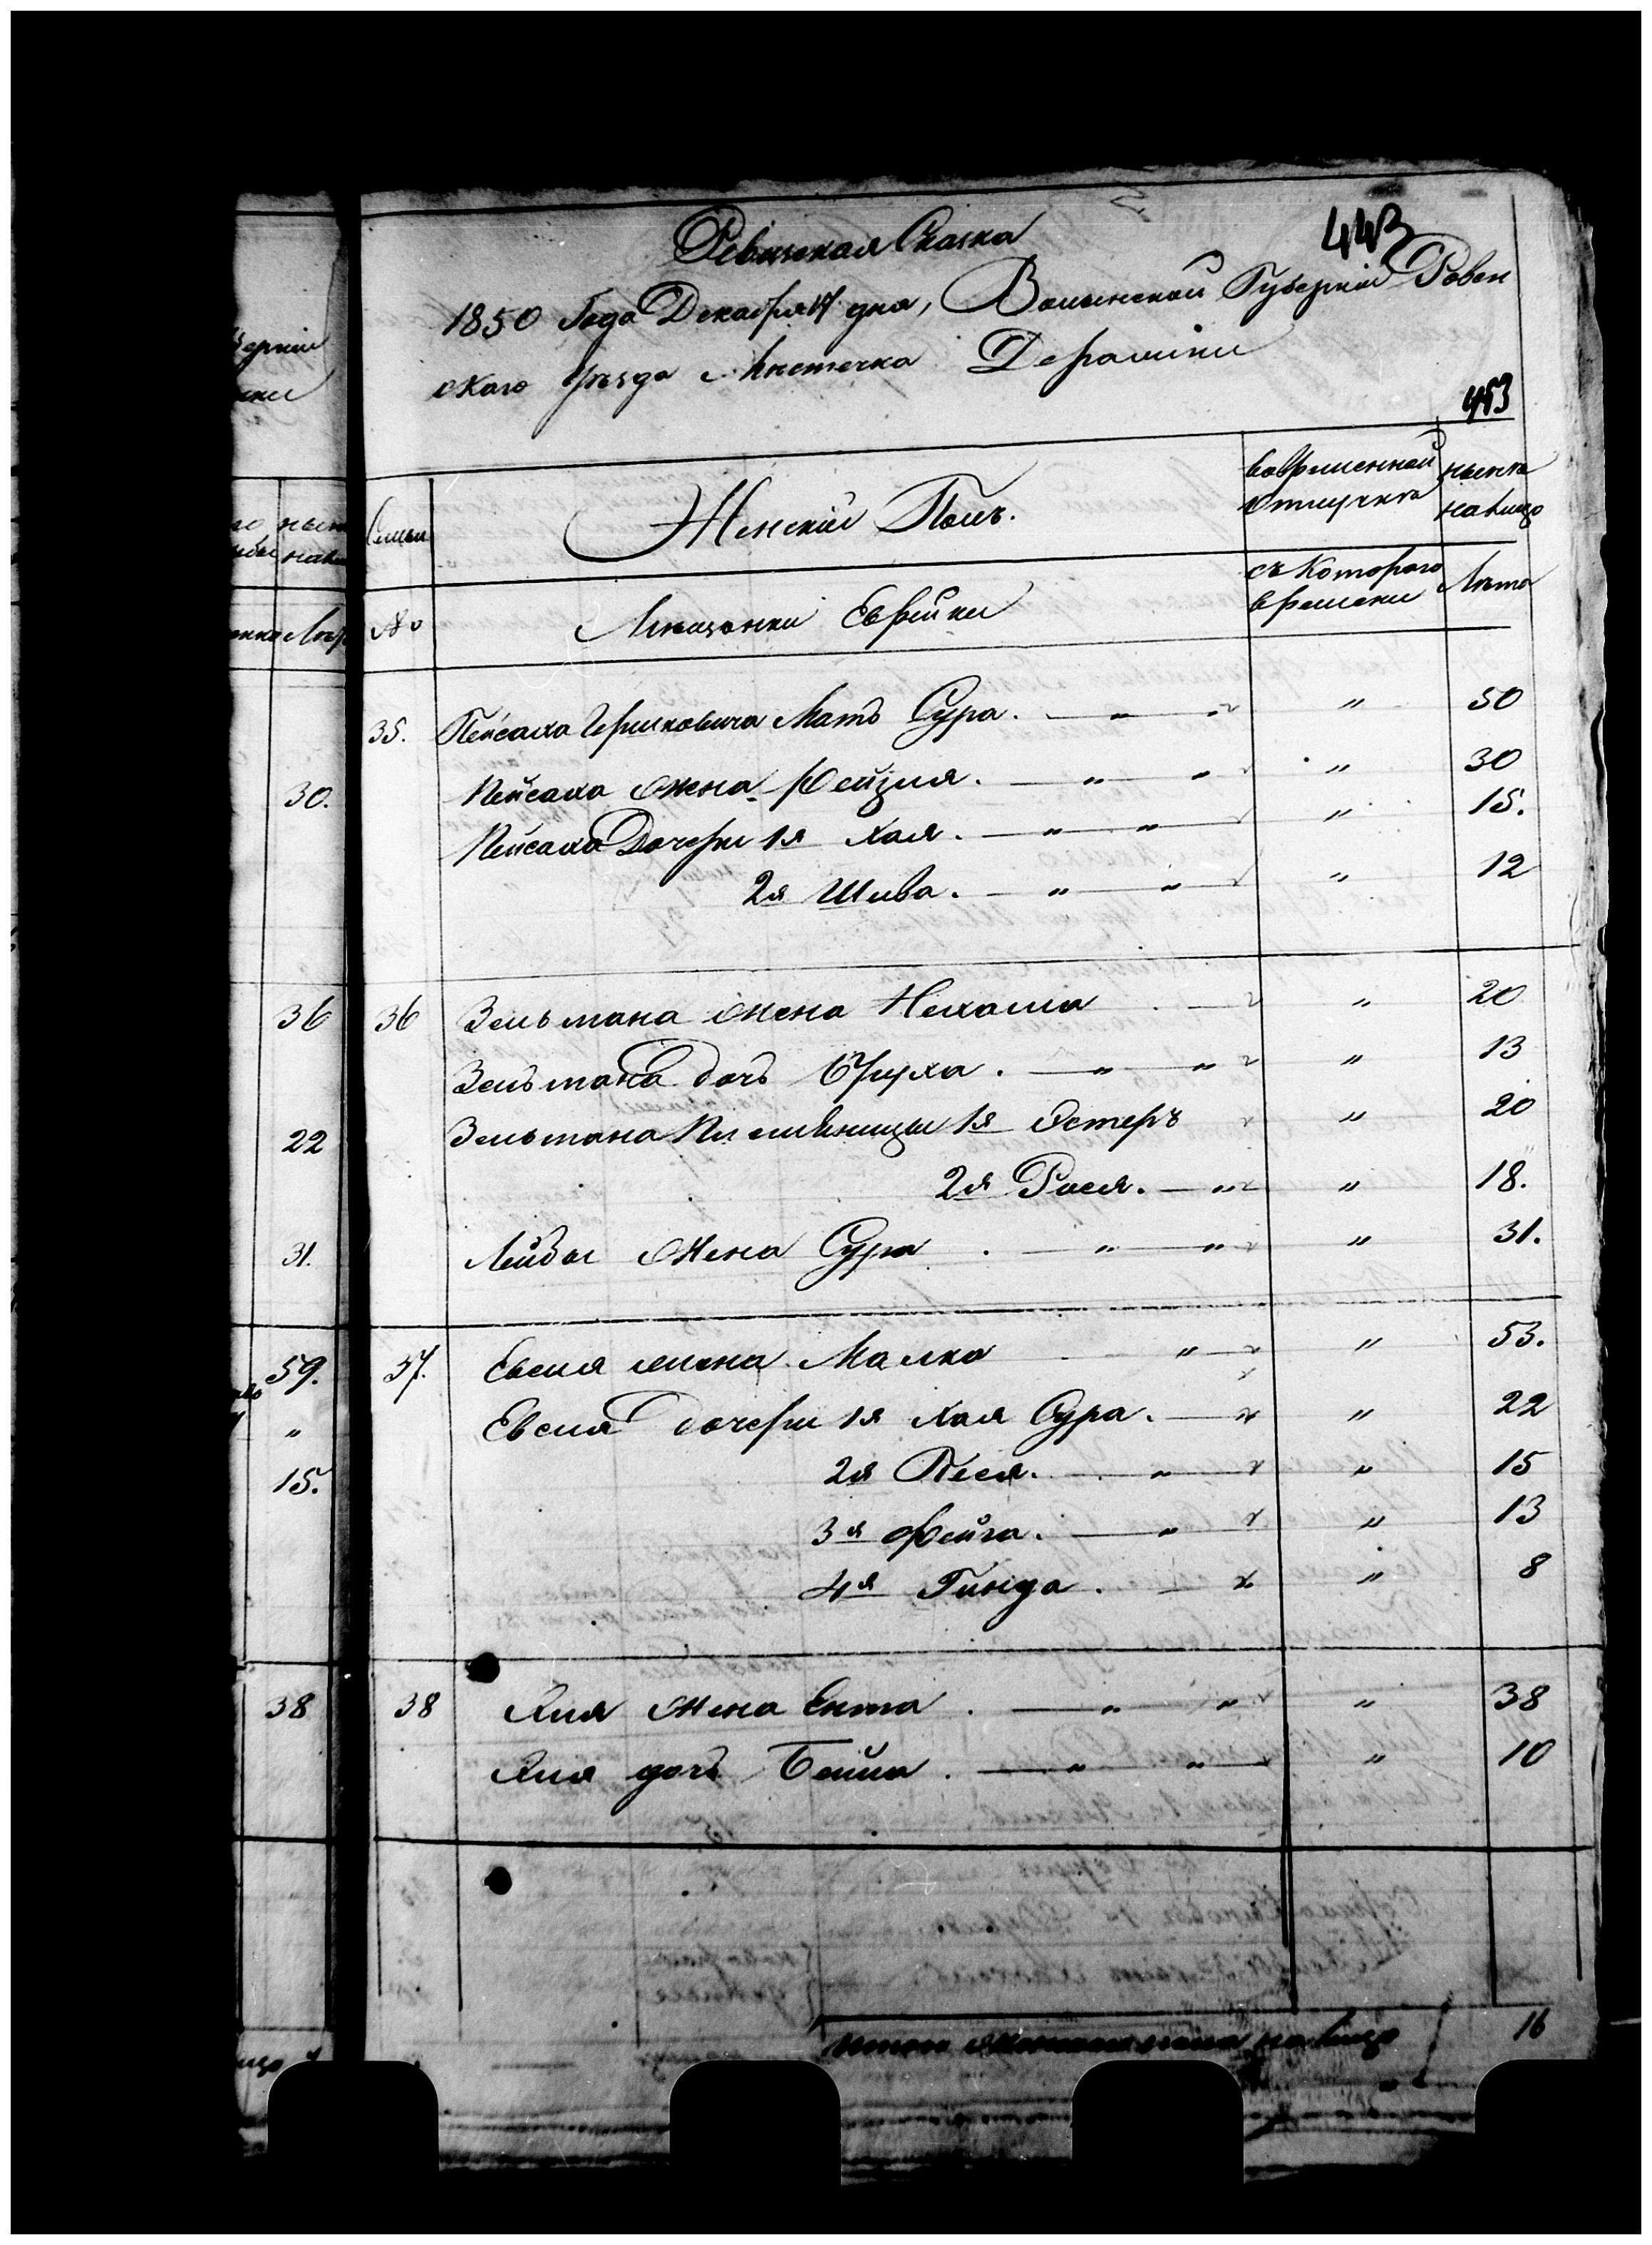 443
Ревизская Сказка
1850 Года Декабря 17 дня, Волынской Губернiи Ровен
скаго Уѣзда Мѣстечка Деражни
453
Семьи
Женскiй Полъ.
во временной отлучкѣ
нынѣ на лицо
№
Мѣщанки Еврейки
съ Котораго времени
Лѣта
35. Пейсаха Гершковича Мать Сура. — „ — „ 50
Пейсаха Жена Рейзля. — „ — „ „ 30
Пейсаха Дочери 1я Хая. — „ — „ „ 15.
2я Шива. — „ — „ „ 12
36 36 Зельмана жена Нехама . — „ 20
Зельмана дочь Бруха. — „ — „ „ 13
22 Зельмана Племѣницы 1я Эстеръ „ 20
2я Рася. — „ „ 18.
31. Лейбы Жена Сура . — „ — „ „ 31.
59. 37. Евсия жена Малка „ — „ 53.
„ Евсия дочери 1я Хая Сура. — „ 22
15. 2я Песя. — „ — „ 15
3я Фейга. — „ „ 13
4я Гинда . — „ 8
38 38 жена Ента . — „ — „ „ 38
дочь Бейла . — „ — „ — „ 10
Итого женскаго пола на лицо 16